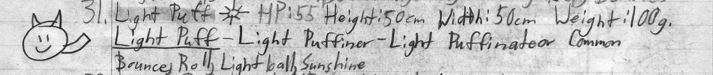 31. Light Puff ☼ HP:55 Height:50cm Width:50cm Weight:100g.
Light Puff-Light Puffiner-Light Puffinateor Common
Bounce, Roll, Light ball, Sunshine